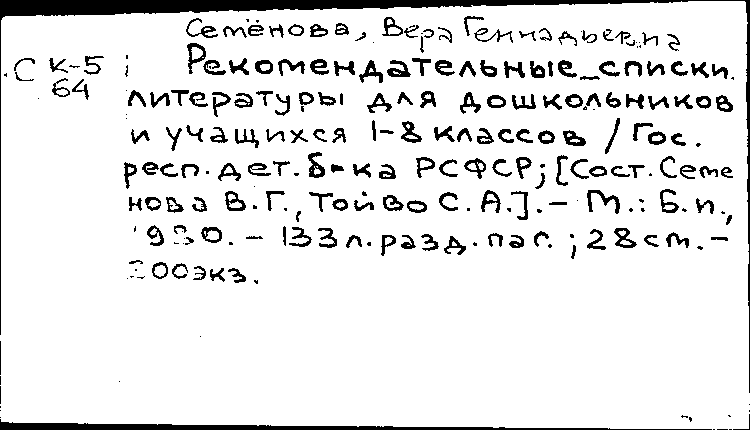 Семёнова, Вера Геннадьевна
С К-5 Рекомендательные списки
64 литературы для дошкольников
и учащихся 1-8 классов / Гос.
респ. дет. б-ка РСФСР; [Сост. Семе
нова В.Г., Тойво С.А.]. – М.: Б.и.,
– 133 л. разд. паг.; 28 см. –
200 экз.